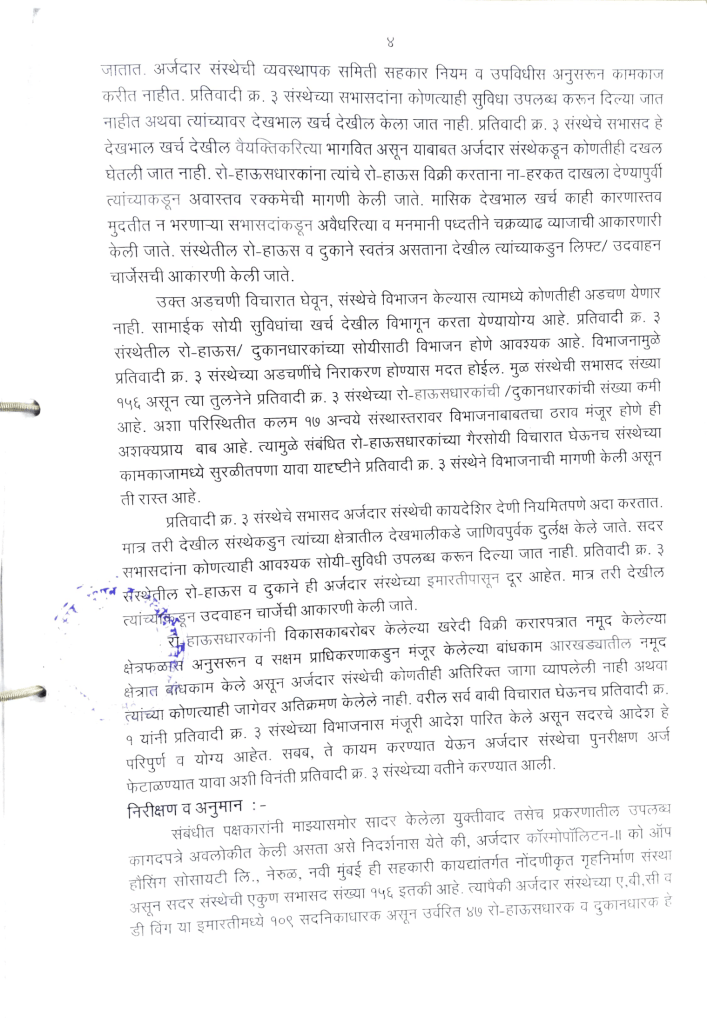 ४
जातात. अर्जदार संस्थेची व्यवस्थापक समिती सहकार नियम व उपविधीस अनुसरून कामकाज
करीत नाहीत. प्रतिवादी क्र. ३ संस्थेच्या सभासदांना कोणत्याही सुविधा उपलब्ध करून दिल्या जात
नाहीत अथवा त्यांच्यावर देखभाल खर्च देखील केला जात नाही. प्रतिवादी क्र. ३ संस्थेचे सभासद हे
देखभाल खर्च देखील वैयक्तिकरित्या भागवित असून याबाबत अर्जदार संस्थेकडून कोणतीही दखल
घेतली जात नाही. रो-हाऊसधारकांना त्यांचे रो-हाऊस विक्री करताना ना-हरकत दाखला देण्यापुर्वी
त्यांच्याकडून अवास्तव रक्कमेची मागणी केली जाते. मासिक देखभाल खर्च काही कारणास्तव
मुदतीत न भरणाऱ्या सभासदांकडून अवैधरित्या व मनमानी पध्दतीने चक्रव्याढ व्याजाची आकारणारी
केली जाते. संस्थेतील रो-हाऊस व दुकाने स्वतंत्र असताना देखील त्यांच्याकडुन लिफ्ट/ उदवाहन
चार्जेसची आकारणी केली जाते.
उक्त अडचणी विचारात घेवून, संस्थेचे विभाजन केल्यास त्यामध्ये कोणतीही अडचण येणार
नाही. सामाईक सोयी सुविधांचा खर्च देखील विभागून करता येण्यायोग्य आहे. प्रतिवादी क्र. ३
संस्थेतील रो-हाऊस/ दुकानधारकांच्या सोयीसाठी विभाजन होणे आवश्यक आहे. विभाजनामुळे
प्रतिवादी क्र. ३ संस्थेच्या अडचणींचे निराकरण होण्यास मदत होईल. मुळ संस्थेची सभासद संख्या
१५६ असून त्या तुलनेने प्रतिवादी क्र. ३ संस्थेच्या रो-हाऊसधारकांची /दुकानधारकांची संख्या कमी
आहे. अशा परिस्थितीत कलम १७ अन्वये संस्थास्तरावर विभाजनाबाबतचा ठराव मंजूर होणे ही
अशक्यप्राय बाब आहे. त्यामुळे संबंधित रो-हाऊसधारकांच्या गैरसोयी विचारात घेऊनच संस्थेच्या
कामकाजामध्ये सुरळीतपणा यावा यादृष्टीने प्रतिवादी क्र. ३ संस्थेने विभाजनाची मागणी केली असून
ती रास्त आहे.
प्रतिवादी क्र. ३ संस्थेचे सभासद अर्जदार संस्थेची कायदेशिर देणी नियमितपणे अदा करतात.
मात्र तरी देखील संस्थेकडुन त्यांच्या क्षेत्रातील देखभालीकडे जाणिवपुर्वक दुर्लक्ष केले जाते. सदर
सभासदांना कोणत्याही आवश्यक सोयी-सुविधी उपलब्ध करून दिल्या जात नाही. प्रतिवादी क्र. ३
संस्थेतील रो-हाऊस व दुकाने ही अर्जदार संस्थेच्या इमारतीपासून दूर आहेत. मात्र तरी देखील
त्यांच्याकडून उदवाहन चार्जेची आकारणी केली जाते.
रो-हाऊसधारकांनी विकासकाबरोबर केलेल्या खरेदी विक्री करारपत्रात नमूद केलेल्या
क्षेत्रफळास अनुसरून व सक्षम प्राधिकरणाकडुन मंजूर केलेल्या बांधकाम आरखड्यातील नमूद
क्षेत्रात बांधकाम केले असून अर्जदार संस्थेची कोणतीही अतिरिक्त जागा व्यापलेली नाही अथवा
त्यांच्या कोणत्याही जागेवर अतिक्रमण केलेले नाही. वरील सर्व बाबी विचारात घेऊनच प्रतिवादी क्र.
१ यांनी प्रतिवादी क्र. ३ संस्थेच्या विभाजनास मंजूरी आदेश पारित केले असून सदरचे आदेश हे
परिपुर्ण व योग्य आहेत. सबब, ते कायम करण्यात येऊन अर्जदार संस्थेचा पुनरीक्षण अर्ज
फेटाळण्यात यावा अशी विनंती प्रतिवादी क्र. ३ संस्थेच्या वतीने करण्यात आली.
निरीक्षण व अनुमान :-
संबंधीत पक्षकारांनी माझ्यासमोर सादर केलेला युक्तीवाद तसेच प्रकरणातील उपलब्ध
कागदपत्रे अवलोकीत केली असता असे निदर्शनास येते की, अर्जदार कॉस्मोपॉलिटन-II को ऑप
हौसिंग सोसायटी लि., नेरुळ, नवी मुंबई ही सहकारी कायद्यांतर्गत नोंदणीकृत गृहनिर्माण संस्था
असून सदर संस्थेची एकुण सभासद संख्या १५६ इतकी आहे. त्यापैकी अर्जदार संस्थेच्या ए,बी,सी व
डी विंग या इमारतीमध्ये १०९ सदनिकाधारक असून उर्वरित ४७ रो-हाऊसधारक व दुकानधारक हे